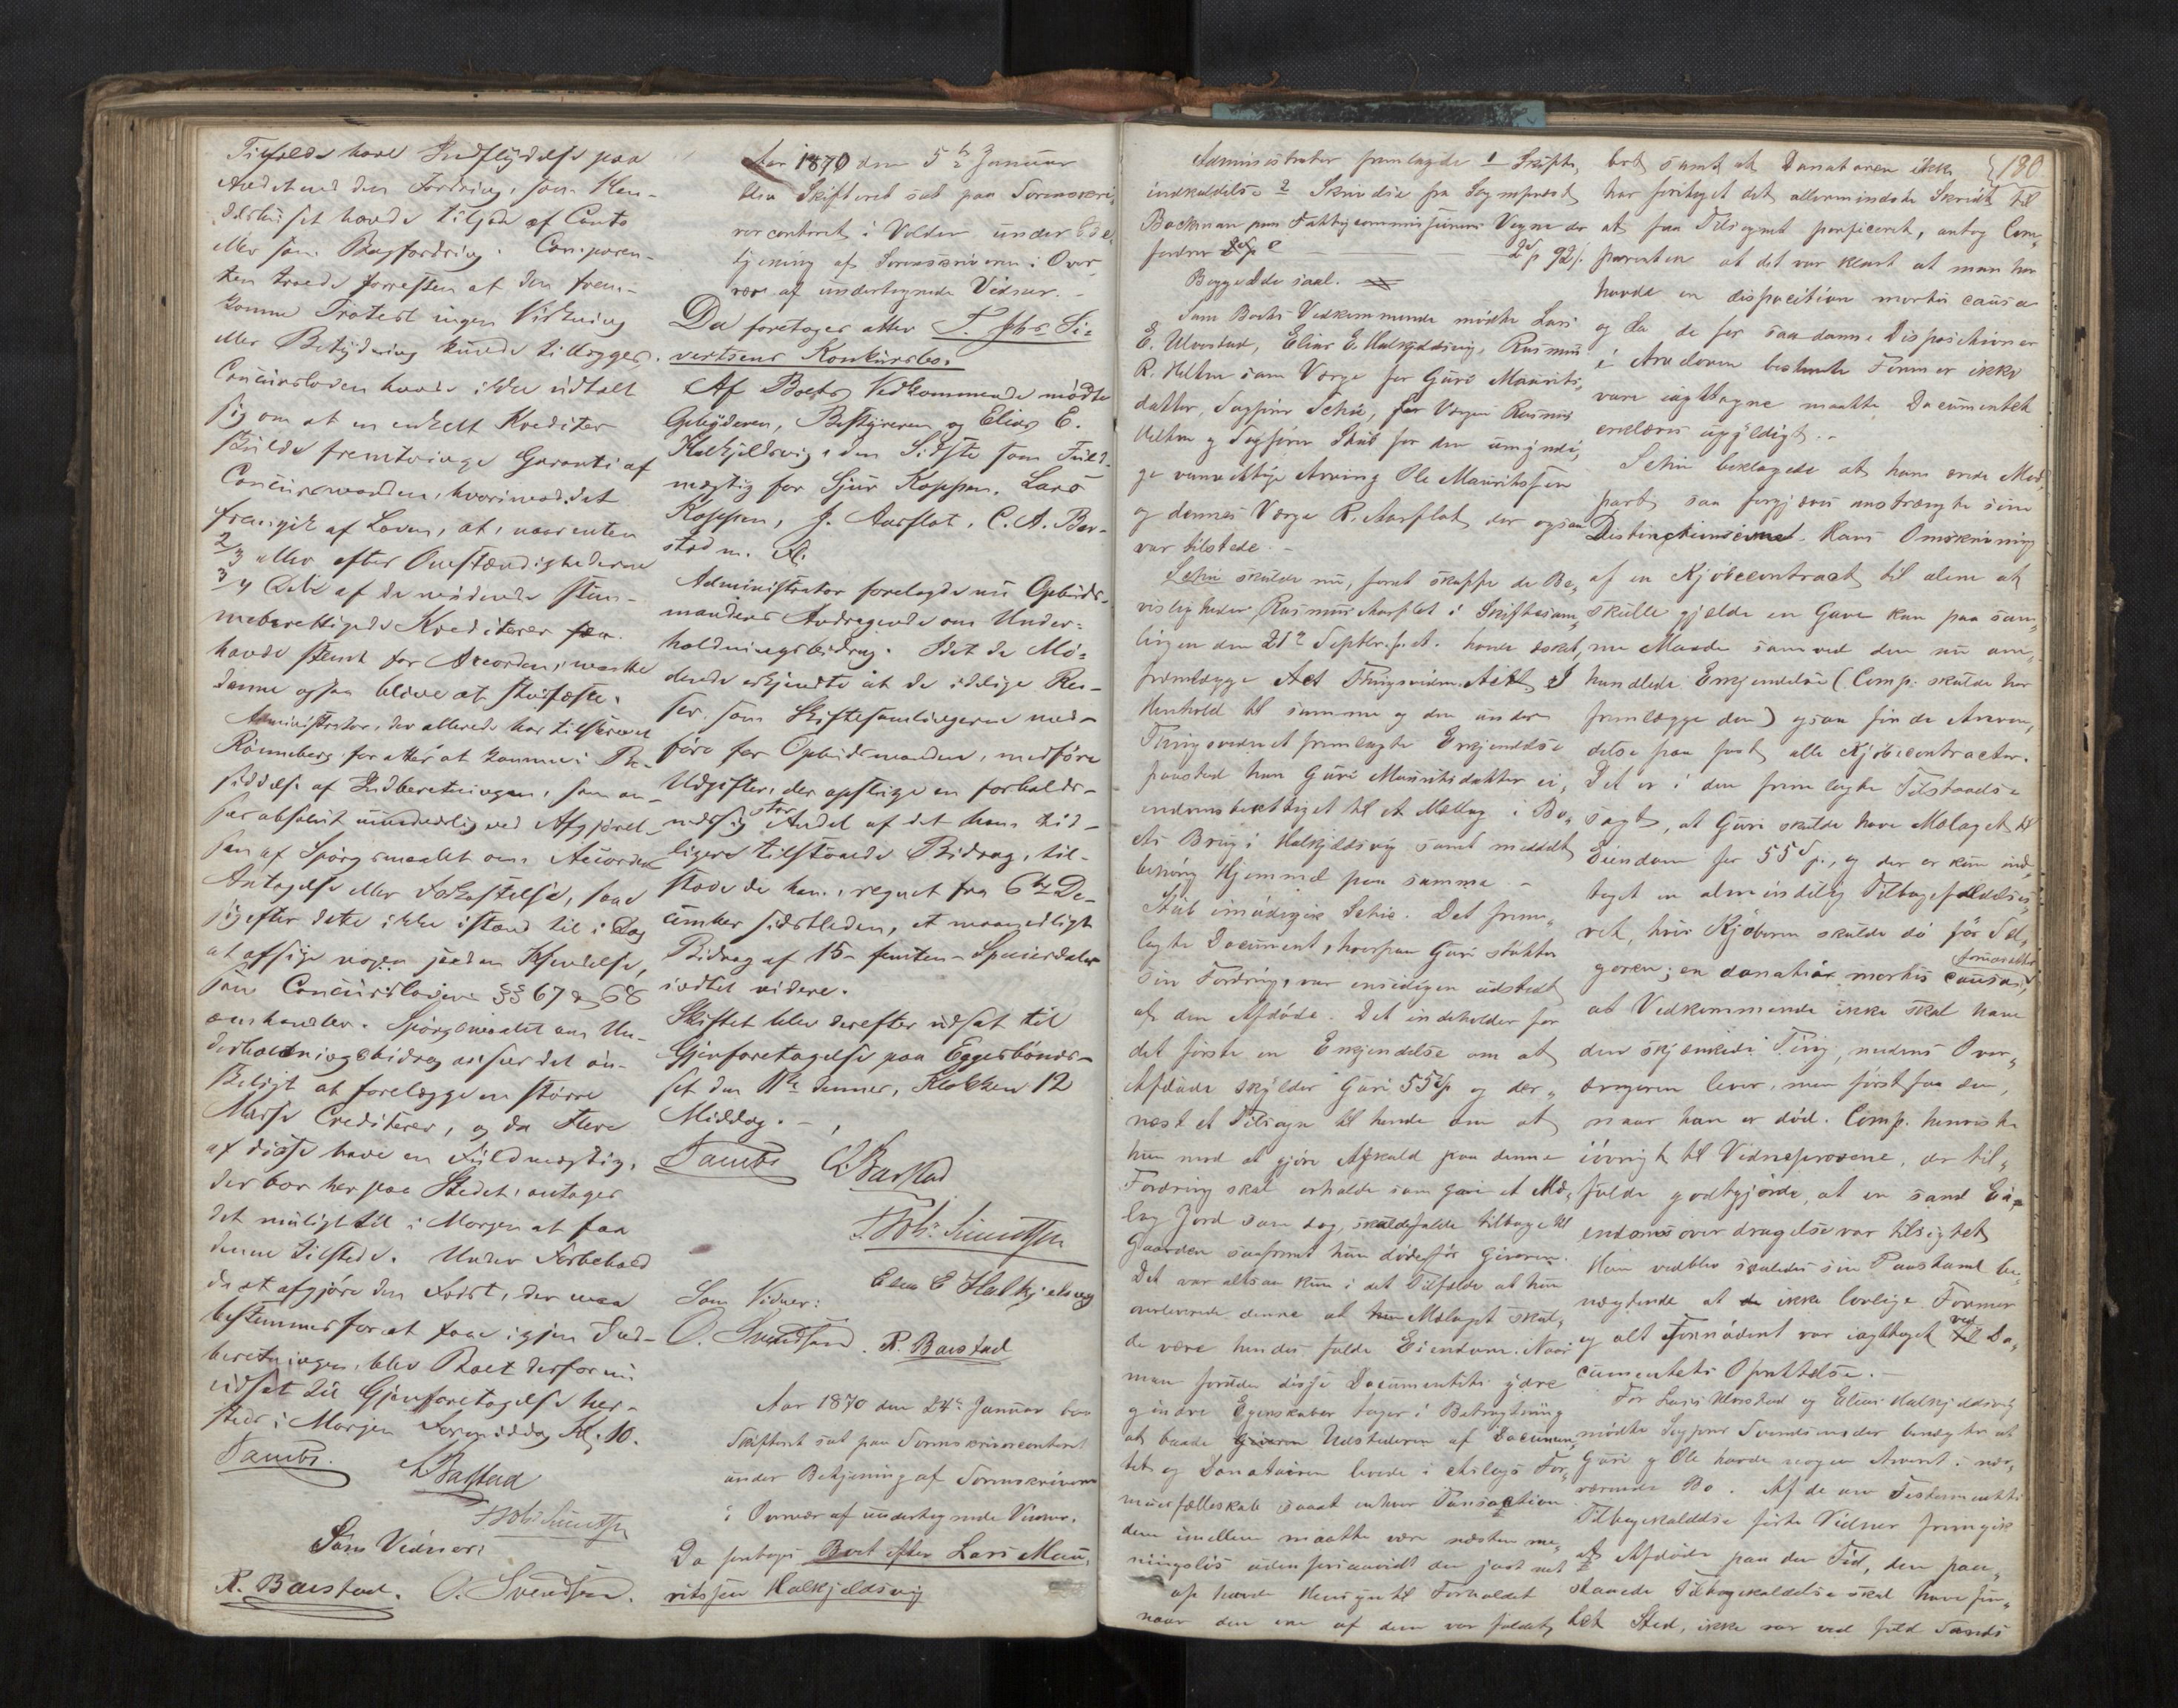 Tilfælde have Indflydelse paa
Andet end den Fordring, som Han-
delshuset havde tilgode af Conto
eller som Bogfordring. Comparen-
ten troede forresten at den frem-
komne Protest ingen Virkning
eller Betydning kunde tillægges.
Concursloven havde ikke udtalt
sig om at en enkelt Kreditor
skulde fremtvinge Garanti af
Concursmanden, hvorimod det
fremgik af Loven, at, naar enten
2/3 eller efter Omstændighederne
3/4 Dele af de mødende stem-
meberettigede Kreditorer
havde stemt for Accorden, maatte
denne ogsaa blive at stadfæste.
Administrator, der allerede har tilskrevet
Rønneberg for atter at komme i Be-
siddelse af Indberetningen, som an-
sees absolut ved Afgjørel-
sen af Spørgsmaalet om Accordens
Antagelse eller Forkastelse, saae
sig efter dette ikke istand til i Dag
at afsige nogen saadan Kjendelse,
som Concurslovens §§ 67 & 68
omhandler. Spørgsmaalet om Un-
derholdningsbidrag ansees det øn-
skeligt at forelægge en større
Masse Creditorer, og da flere
af disse have en Fuldmægtig,
der bor her paa Stedet, antages
det muligt til i Morgen at faa
denne tilstede. Under Forbehold
af at afgjøre den Frist, der maa
bestemmes for at faae igjen Ind-
beretningen, blev Boet derfor nu
udsat til Gjenforetagelse her-
steds i Morgen Formiddag Kl. 10.
Tambs. C. Barstad
T. Joh: Siverttsen
Som Vidner:
R. Barstad. O. Svendsen.
Aar 1870 den 5te Januar
blev Skifteret sat paa Sorenskri-
vercontoret i Volden under Be-
tjening af Sorenskriveren i Over-
vær af undertegnede Vidner.
Da foretoges atter T. Johs Si-
vertsens Konkursbo.
Af Boets Vedkommende mødte
Opbyderen, Bestyreren og Elias E.
Halkjelsvig, den Sidste som Fuld-
mægtig for Sjur Koppen, Lars
Koppen, J. Aarflot, C. A. Bar-
stad m. Fl.
Administrator forelagde nu Opbuds-
mandens Andragende om Under-
holdningsbidrag. Idet de Mø-
dende erkjendte at de idelige Rei-
ser, som Skiftesamlingerne med-
føre for Opbudsmanden, medføre
Udgifter, der opsluge en forholds-
mæssig stor Andel af det ham tid-
ligere tilstaaede Bidrag, til-
stode de ham, regnet fra 6te De-
cember sidstleden, et maanedligt
Bidrag af 15 - femten - Speciedaler
indtil videre.
Skiftet blev derefter udsat til
Gjenforetagelse paa Eggesbønds-
set den 11te dennes, Klokken 12
Middag. -
Tambs C. Barstad
T. Joh: Siverttsen
Elias E Halkjelsvig
Som Vidner:
O. Svendsen. R. Barstad
Aar 1870 den 24de Januar blev
Skifteret sat paa Sorenskrivercontoret
under Betjening af Sorenskriveren
i Overvær af undertegnede Vidner.
Da foretoges Boet efter Lars Mau-
ritssen Halkjeldsvig
Administrator fremlagde 1 Skifte-
indkaldelse 2 Skrivelse fra Sogneprest
Backman paa Fattigcommissionens Vegne der
fordrer 2 Spd 92 s.
Begge
Som Boets Vedkommende mødte Lars
E. Ulvestad, Elias E. Halkjeldsvig, Rasmus
R. Helten som Værge for Guri Maurits-
datter, Sagfører Schie, for Værgen Rasmus
Helten og Sagfører Stub for den umyndi-
ge vanvittige Arving Ole Mauritssen
og dennes Værge R. Aarflot, der ogsaa
var tilstede. -
Schie skulde nu, foruds skaffe de Be-
visligheder Rasmus Aarflot i Skiftesam-
lingen den 21de Septbr. f. A. havde
fremlægge Act Thingsvidne Actet I
Henhold til samme og den under
Thingsvidnet fremlagte Erkjendelse
paastod han Guri Mauritsdatter ei-
endomsberettiget til et Mællag i Bo-
ets Brug i Halkjeldsvig samt meddelt
behørig Hjemmel paa samme. -
Stub imødegik Schie. Det frem-
lagte Document, hvorpaa Guri støtter
sin Fordring, var ensidigen udstedt
af den Afdøde. Det indeholder for
det første en Erkjendelse om at
Afdøde skylder Guri 55 Spd og der-
næst et Tilsagn til hende om at
hun mod at gjøre Afkald paa denne
Fordring skal erholde som Gave et Mæ-
lag Jord som dog skulde falde tilbage til
Gaarden saafremt hun døde før Giveren.
Det var altsaa kun i det Tilfælde at hun
overlevede denne at Mælaget skul-
de være hendes fulde Eiendom. Naar
man foruden disse Documentets ydre
og indre Egenskaber tager i Betragtning
at baade Udstederen af Documen-
tet og Donatairen levede i Arilags For-
muesfællesskab saa at enhver Transaction
dem imellem maatte være næsten me-
ningsløs uden forsaavidt den just net
op havde Hensyn til Forholdet
naar den ene af dem var faldet
bort samt at Donatoren ikke 180
har foretaget det allermindste Skridt til
at faa Tilsagnet perficeret, antog Com-
parenten at det var klart at man her
havde en disposition mortis causa
og da de for saadanne Dispositioner
i Arveloven bestemte Former ikke
vare iagttagne maatte Documentet
erklæres ugyldigt. -
Schie beklagede at hans ærede Mod-
part saa forgjæves anstrængte sine
Distinctionsevner. Hans Omskrivning
af en Kjøbecontract til alene at
skulle gjælde en Gave kan paa sam-
me Maade som ved den nu om-
handlede Erkjendelse (Comp. skulde her
fremlægge den) ogsaa finde Anven-
delse paa fast alle Kjøbecontracter.
Det er i den fremlagte Tilstaaelse
sagt, at Guri skulde have Mælaget til
Eiendom for 55 Spd., og der er kun ind-
taget en almindelig Tilbagefaldelses-
ret, hvis Kjøberen skulde dø før Sæl-
geren; en donatio mortis causa forudsætter
at Vedkommende ikke skal have
den skjænkede Ting, medens Over-
drageren lever, men først faa den,
naar han er død. Comp. henviste
iøvrigt til Vidneprovene, der til-
fulde godtgjorde, at en sand Ei-
endomsoverdragelse var tilsigtet
Han vedblev saaledes sin Paastand be-
nægtende at ikke lovlige Former
og alt Fornødent var iagttaget ved Do-
cumentets Oprettelse. -
For Lars Ulvestad og Elias Halkjeldsvig
mødte Sagfører Svendsen der benægtede at
Guri og Ole havde nogen Arveret i nær-
værende Bo. Af de om Testamentets
Tilbagekaldelse førte Vidner fremgik
at Afdøde paa den Tid, den paa-
staaede Tilbagekaldelse skal have fun-
det Sted, ikke var ved fuld Sands